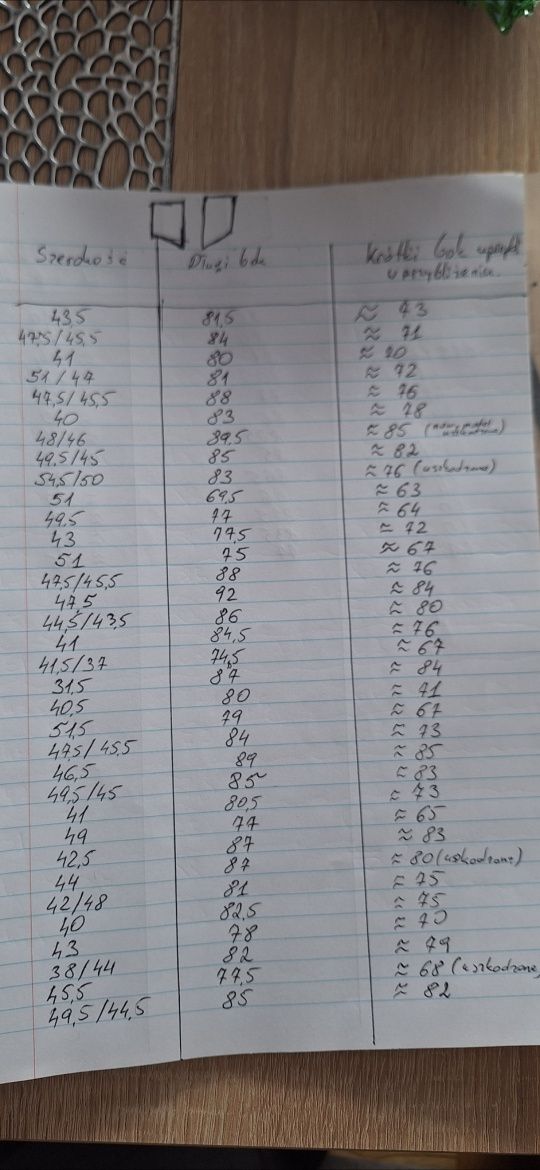 Szerokość Długi bok Krótki bok
w przybliżeniu.
43,5 81,5 ≈ 73
47,5/45,5 84 ≈ 71
41 80 ≈ 70
51/47 81 ≈ 72
47,5/45,5 88 ≈ 76
40 83 ≈ 78
48/46 89,5 ≈ 85
49,5/45 85 ≈ 82
54,5/50 83 ≈ 76 (uszkodzone)
51 69,5 ≈ 63
49,5 77 ≈ 64
43 77,5 ≈ 72
51 75 ≈ 67
47,5/45,5 88 ≈ 76
47,5 92 ≈ 84
44,5/43,5 86 ≈ 80
41 84,5 ≈ 76
41,5/37 74,5 ≈ 67
31,5 87 ≈ 84
40,5 80 ≈ 71
51,5 79 ≈ 67
47,5/45,5 84 ≈ 73
46,5 89 ≈ 85
49,5/45 85 ≈ 83
41 80,5 ≈ 73
49 77 ≈ 65
42,5 87 ≈ 83
44 87 ≈ 80 (uszkodzone)
42/48 81 ≈ 75
40 82,5 ≈ 75
43 78 ≈ 70
38/44 82 ≈ 79
45,5 77,5 ≈ 68 (uszkodzone)
49,5/44,5 85 ≈ 82